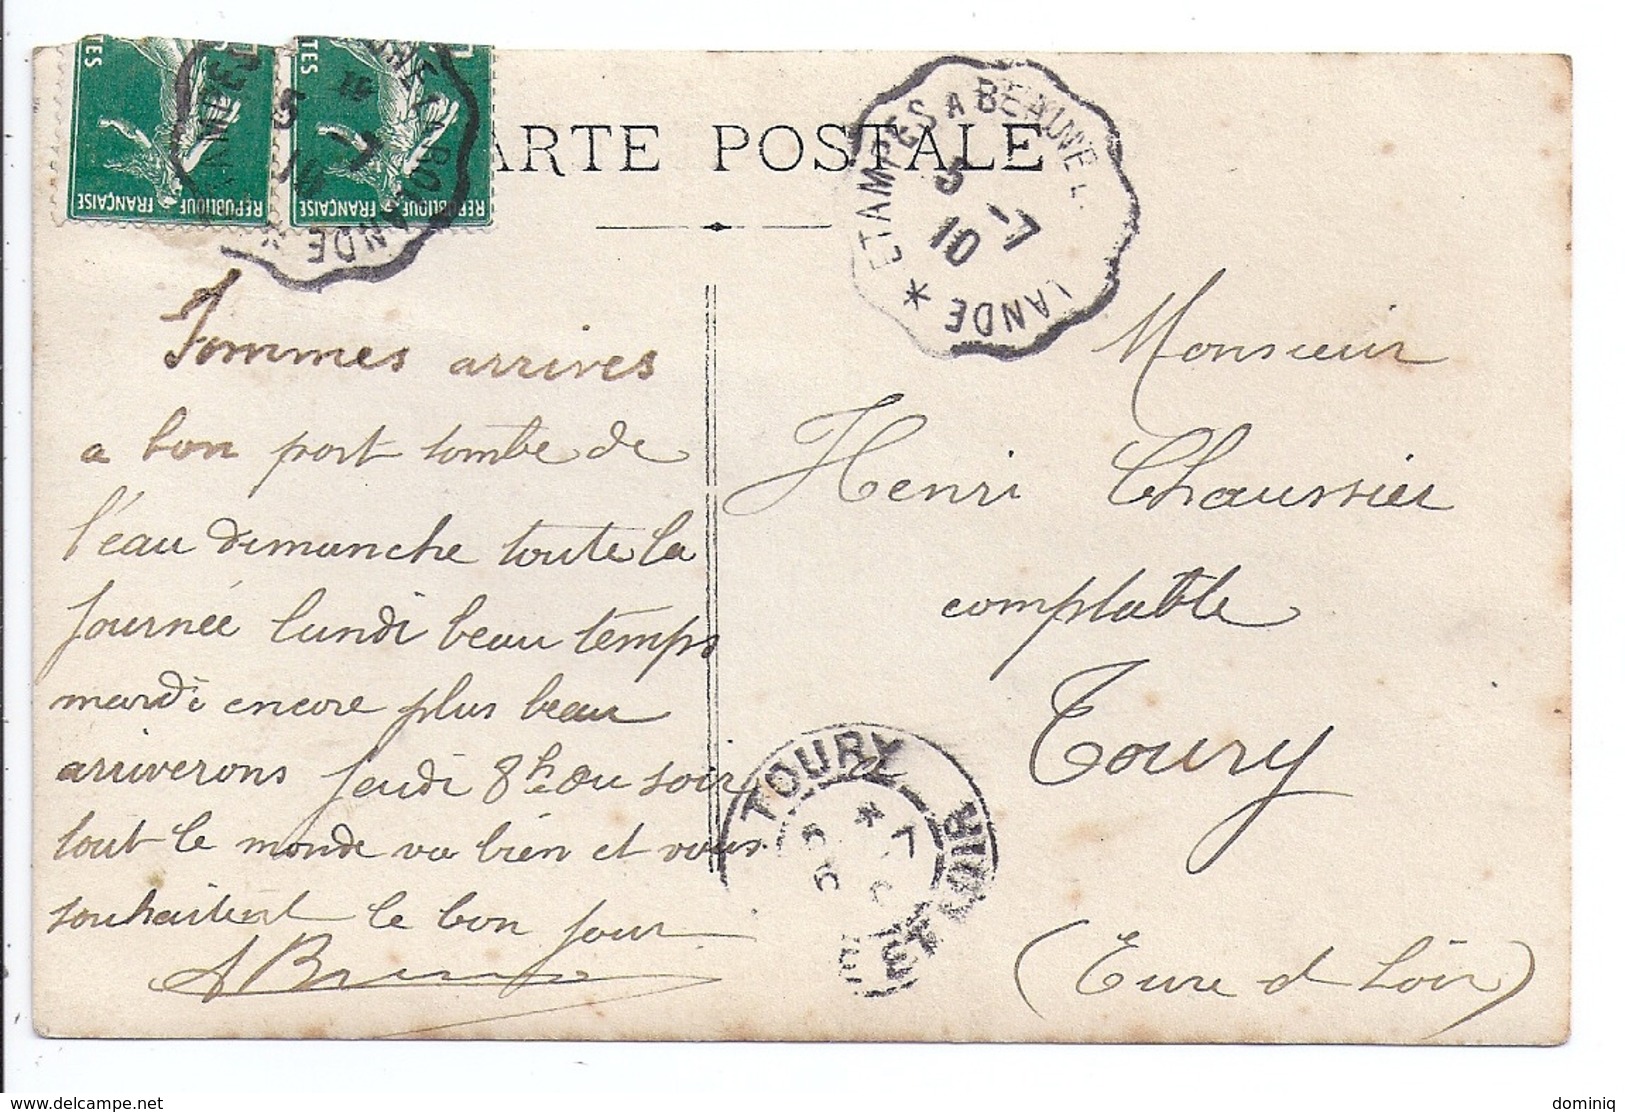 CARTE POSTALE
REPUBLIQUE FRANÇAISE
REPUBLIQUE FRANÇAISE
ETAMPES A BEAUNE L.
LANDE *
5 -7
10
Sommes arrives
a bon port tombe de
l'eau dimanche toute la
journée lundi beau temps
mardi encore plus beau
arriverons jeudi 8h du soir
tout le monde va bien et vous
souhaitent le bon jour
Monsieur
Henri Chaussier
comptable
Toury
(Eure et Loir)
TOURY
EURE ET LOIR
dominiq
www.delcampe.net